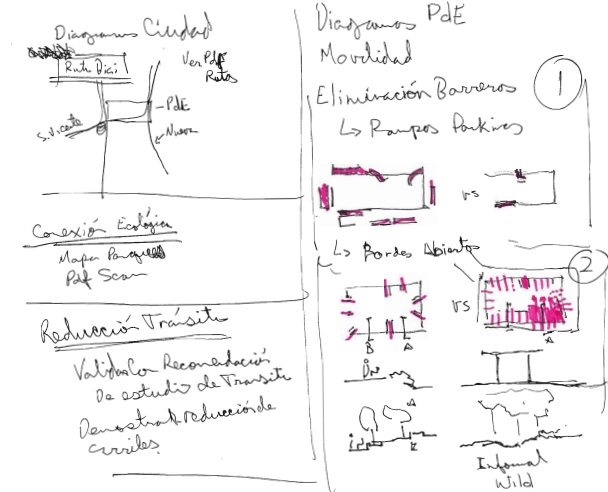 Diagramas Ciudad
Ruta Bici
Ver Pdf
Rutas
PdE
S. Vicente
Nueva
Conexión Ecológica
Mapa Parques
Pdf Scan
Reducción Tránsito
Validar Con Recomendación
De estudio de Transito
Demostrar reducción de
carriles.
Diagramas PdE
Movilidad
Eliminación Barreras
1
↳ Rampas Parking
vs
↳ Bordes Abiertos
2
vs
B A
A
A
Informal
Wild